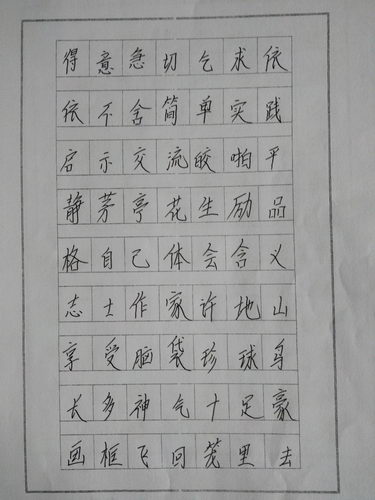 得意急切乞求依
依不舍简单实践
启示交流皎啪平
静茅亭花生励品
格自己体会含义
志士作家许地山
享受脑袋珍球身
长多神气十足豪
画框飞回笼里去